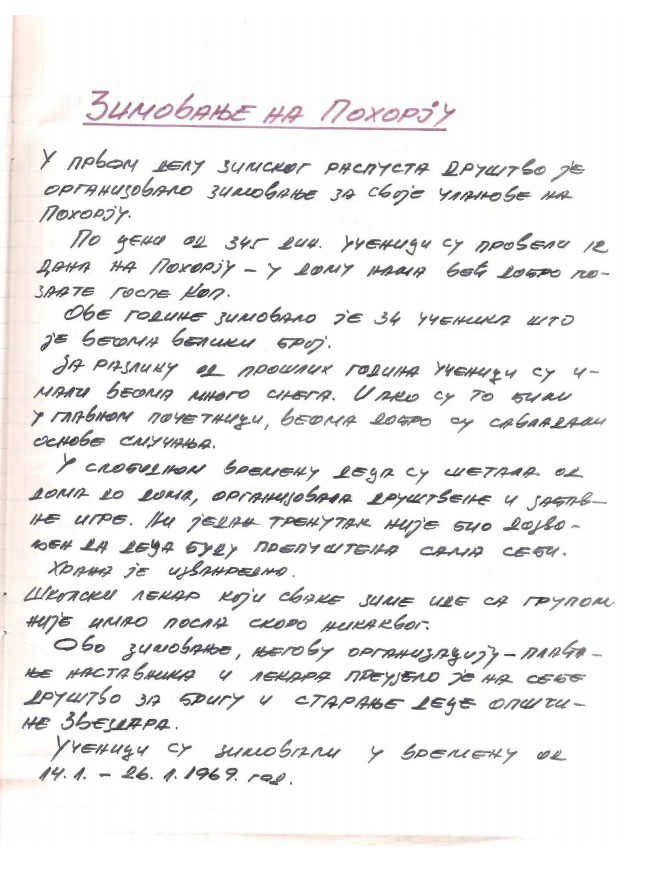 Зимовање на Похорју
У првом делу зимског распуста друштво је
организовало зимовање за своје чланове на
Похорју.
По цени од 34г дин. ученици су провели 12
дана на Похорју – у дому нама већ добро по-
знате госпе Коп.
Ове године зимовало је 34 ученика што
је веома велики број.
За разлику од прошлих година ученици су и-
мали веома много снега. Иако су то били
углавном почетници, веома добро су савладали
основе смучања.
У слободном времену деца су шетала од
дома до дома, организовала друштвене и забав-
не игре. Ни један тренутак није био дозво-
љен да деца буду препуштена сама себи.
Храна је изванредна.
Школски лекар који сваке зиме иде са групом
није имао посла скоро никаквог.
Ово зимовање, његову организацију – плаћа-
ње наставника и лекара преузело је на себе
друштво за бригу и старање деце општи-
не Звездара.
Ученици су зимовали у времену од
14.1. – 26.1.1969. год.